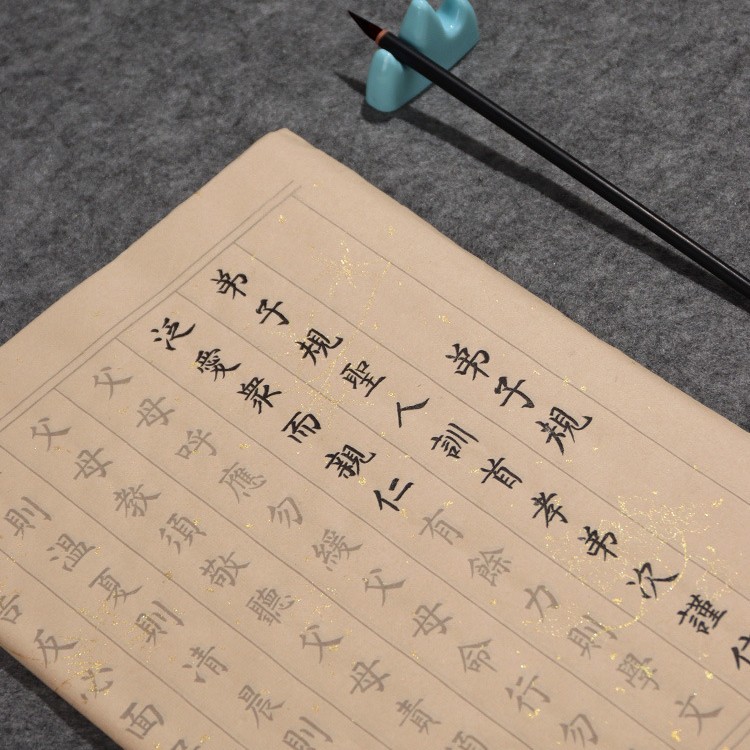 弟子規
弟子規聖人訓首孝弟次謹信
泛愛衆而親仁有餘力則學文
父母呼應勿緩父母命行勿
父母教須敬聽父母責須
則溫夏則清晨則
告反必面